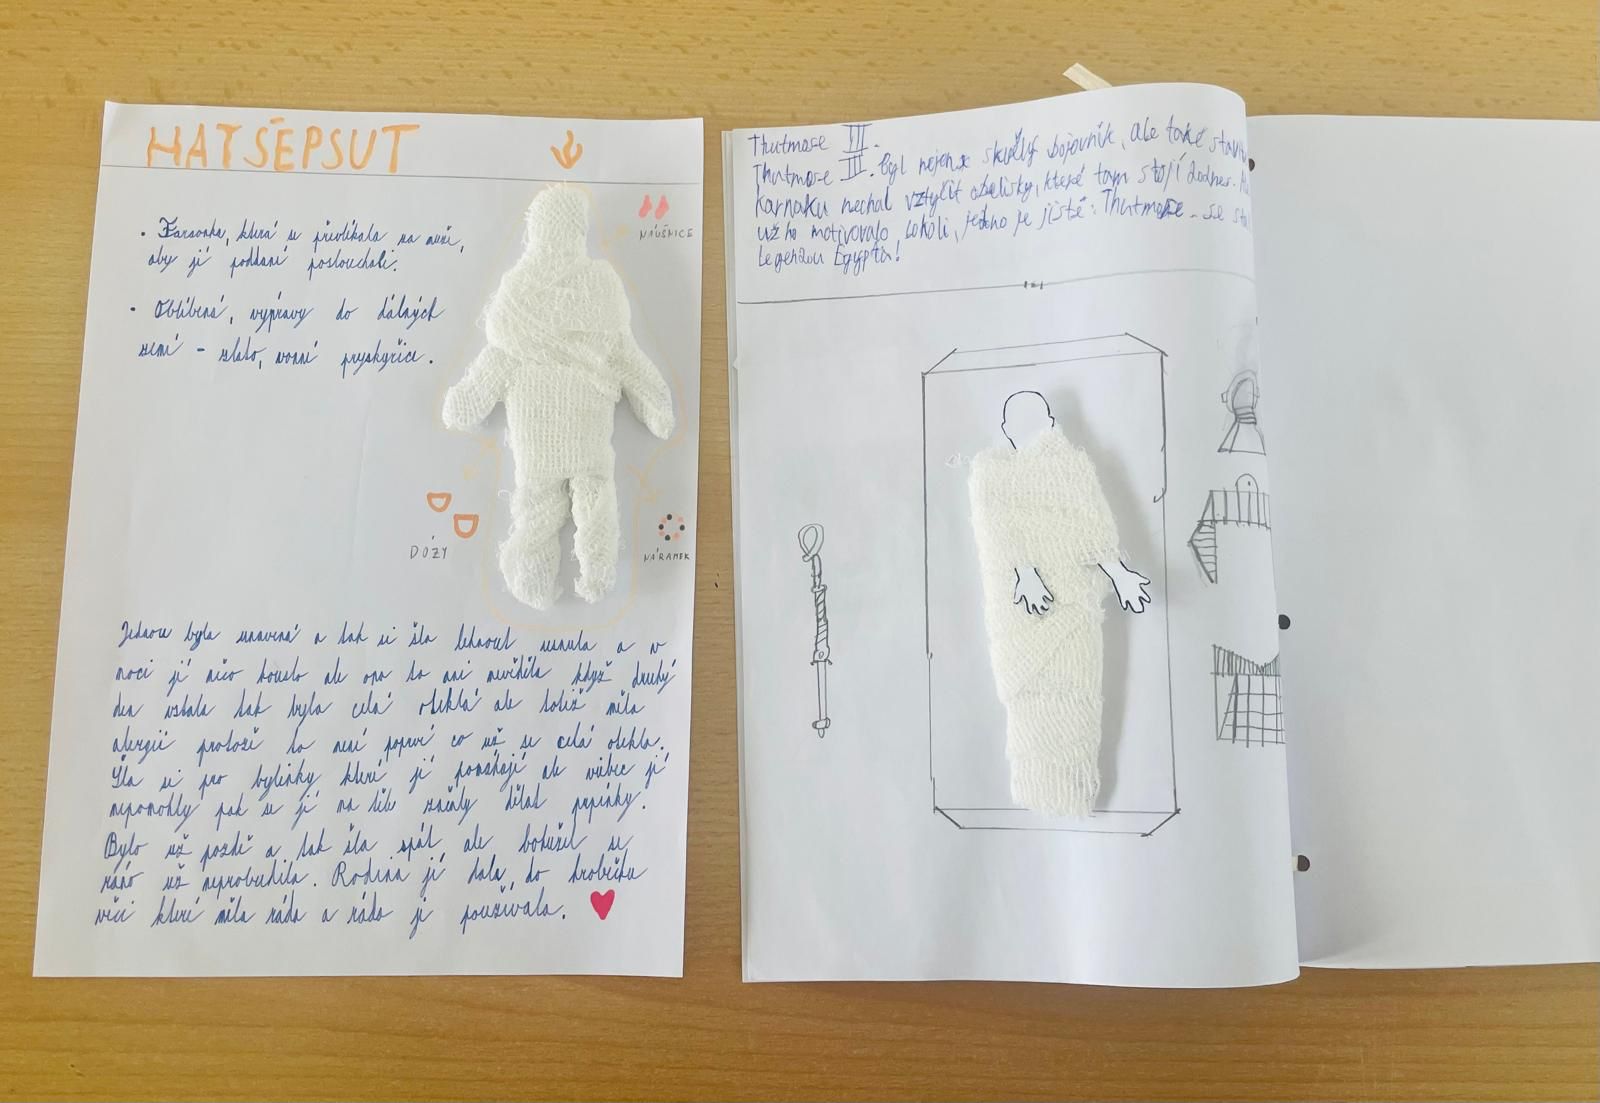 HATŠEPSUT
NAUŠNICE
• Faraonka, která se převlékala za muže,
aby jí poddaní poslouchali.
• Oblíbená, výpravy do dálných
zemí - zlato, vonní pryskyřice.
DÓZY
NÁRAMEK
Jednou byla unavená a tak si šla lehnout usnula a v
noci jí něco kouslo ale ona to ani nevěděla když druhý
den vstala tak byla celá oteklá ale totiž měla
alergii protože to není poprvé co už se celá otekla.
Šla si pro bylinky které jí pomáhají ale vůbec jí
nepomohly pak se jí na těle začaly dělat pupínky.
Bylo už pozdě a tak šla spát ale bohužel se
ráno už neprobudila. Rodina jí dala do hrobečku
věci které měla ráda a ráda je používala.
Thutmose III.
Thutmose III. byl nejenx skvělý bojovník, ale také
Karnaku nechal vztyčit obelisky, které tam stojí dodnes.
už ho motivovalo cokoli, jedno je jisté: Thutmose se
Legendou Egypta!